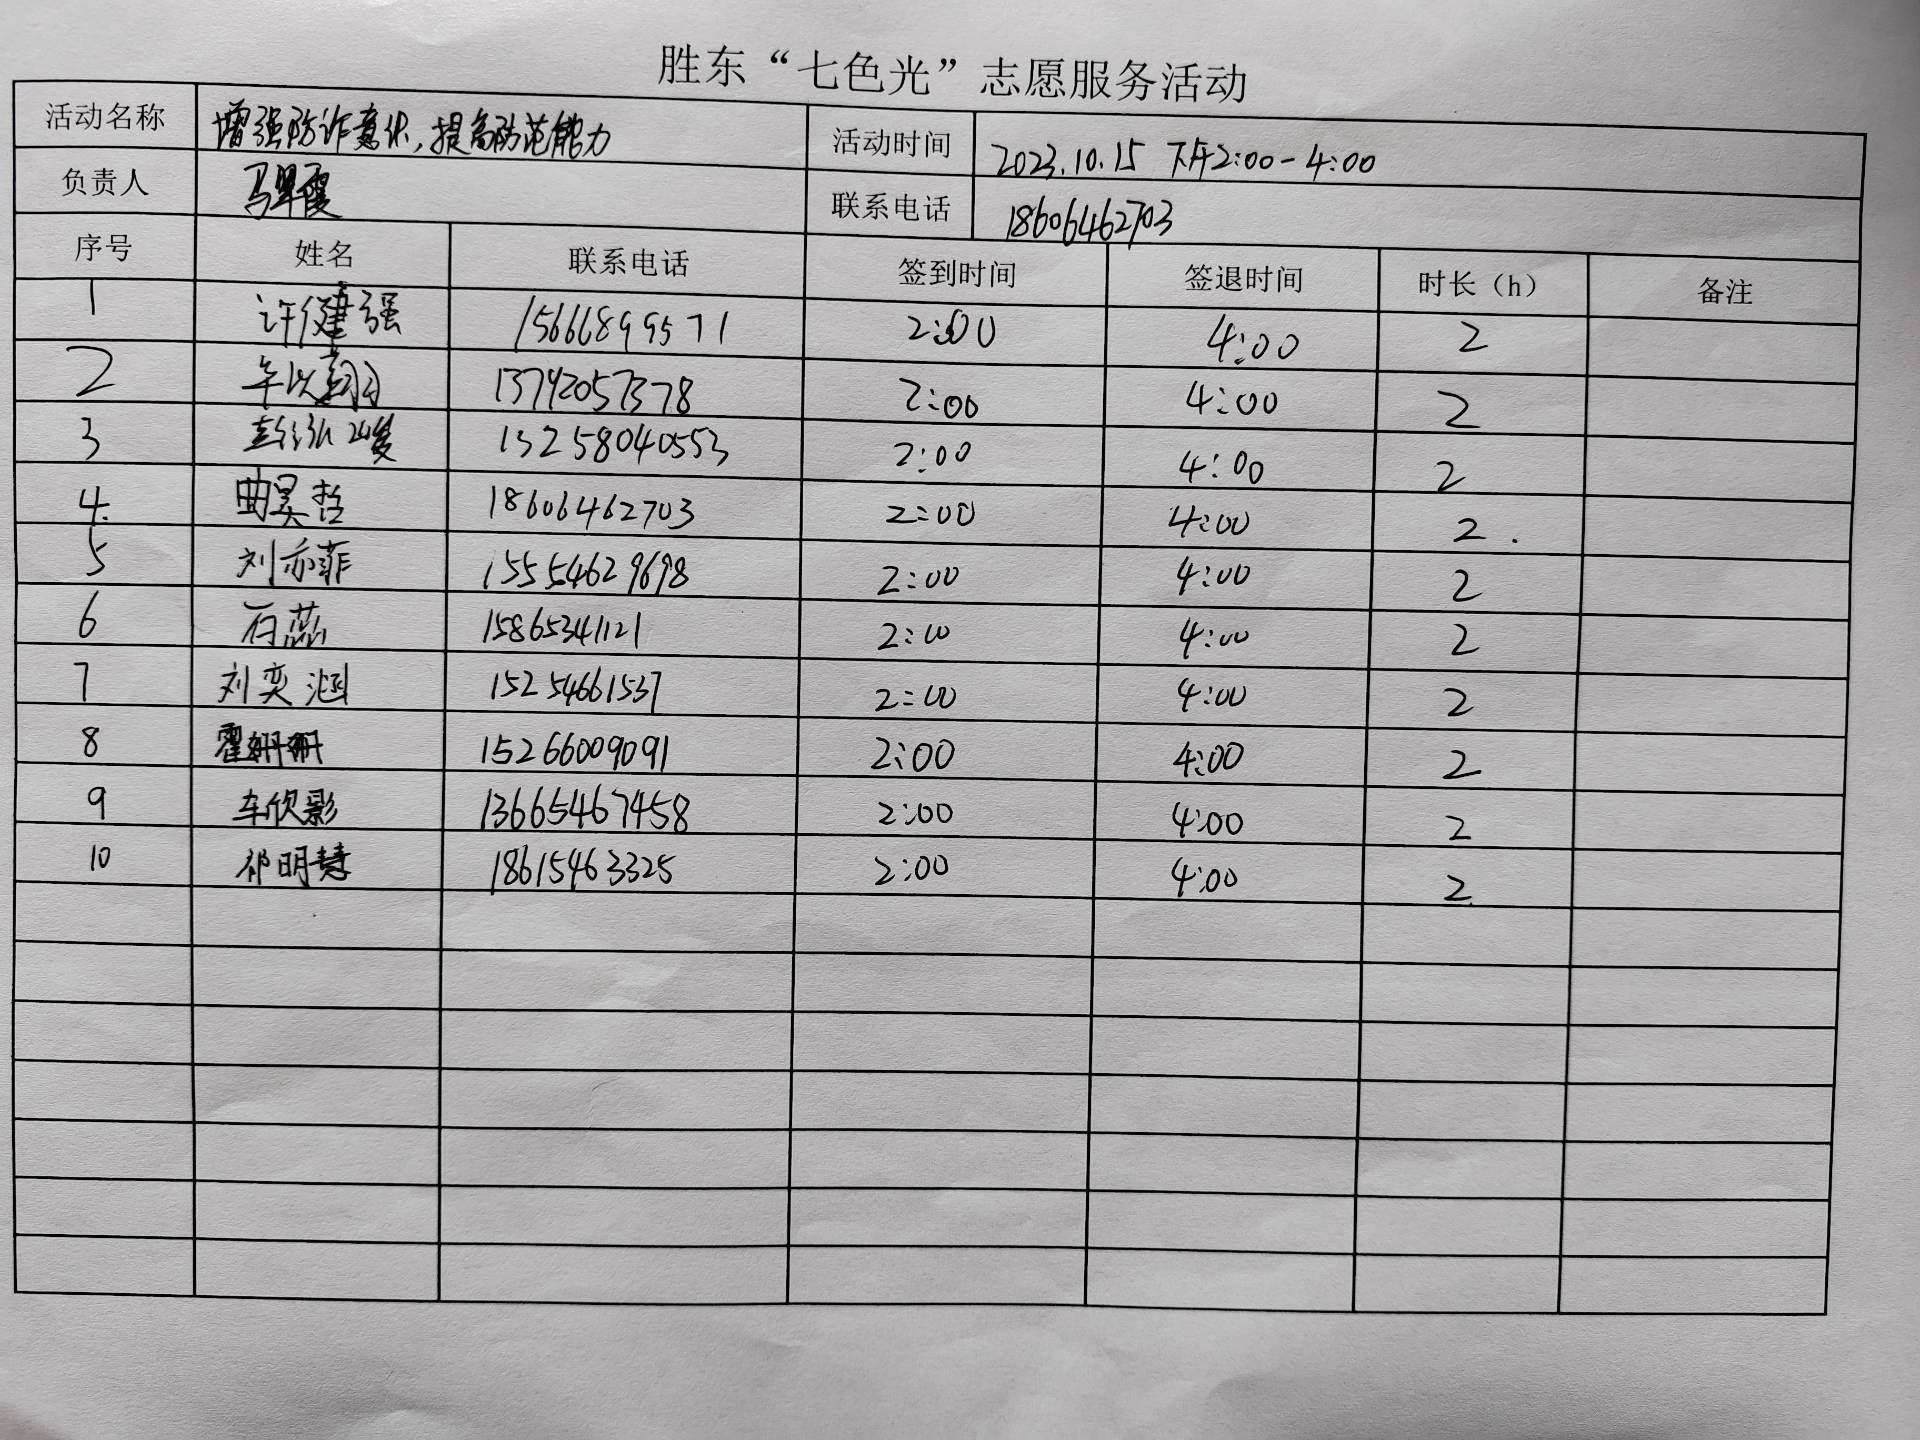 胜东“七色光”志愿服务活动
活动名称 增强防诈意识，提高防范能力 活动时间 2023.10.15 下午2:00-4:00
负责人 马翠霞 联系电话 18606462703
序号 姓名 联系电话 签到时间 签退时间 时长（h） 备注
1 许健强 15666899571 2:00 4:00 2
2 13792057378 2:00 4:00 2
3 13258040553 2:00 4:00 2
4. 曲昊哲 18606462703 2:00 4:00 2.
5 刘亦菲 15554629698 2:00 4:00 2
6 石蕊 15865341121 2:00 4:00 2
7 刘奕涵 15254661537 2:00 4:00 2
8 霍姗姗 15266009091 2:00 4:00 2
9 车欣影 13665467458 2:00 4:00 2
10 祁明慧 18615463325 2:00 4:00 2.